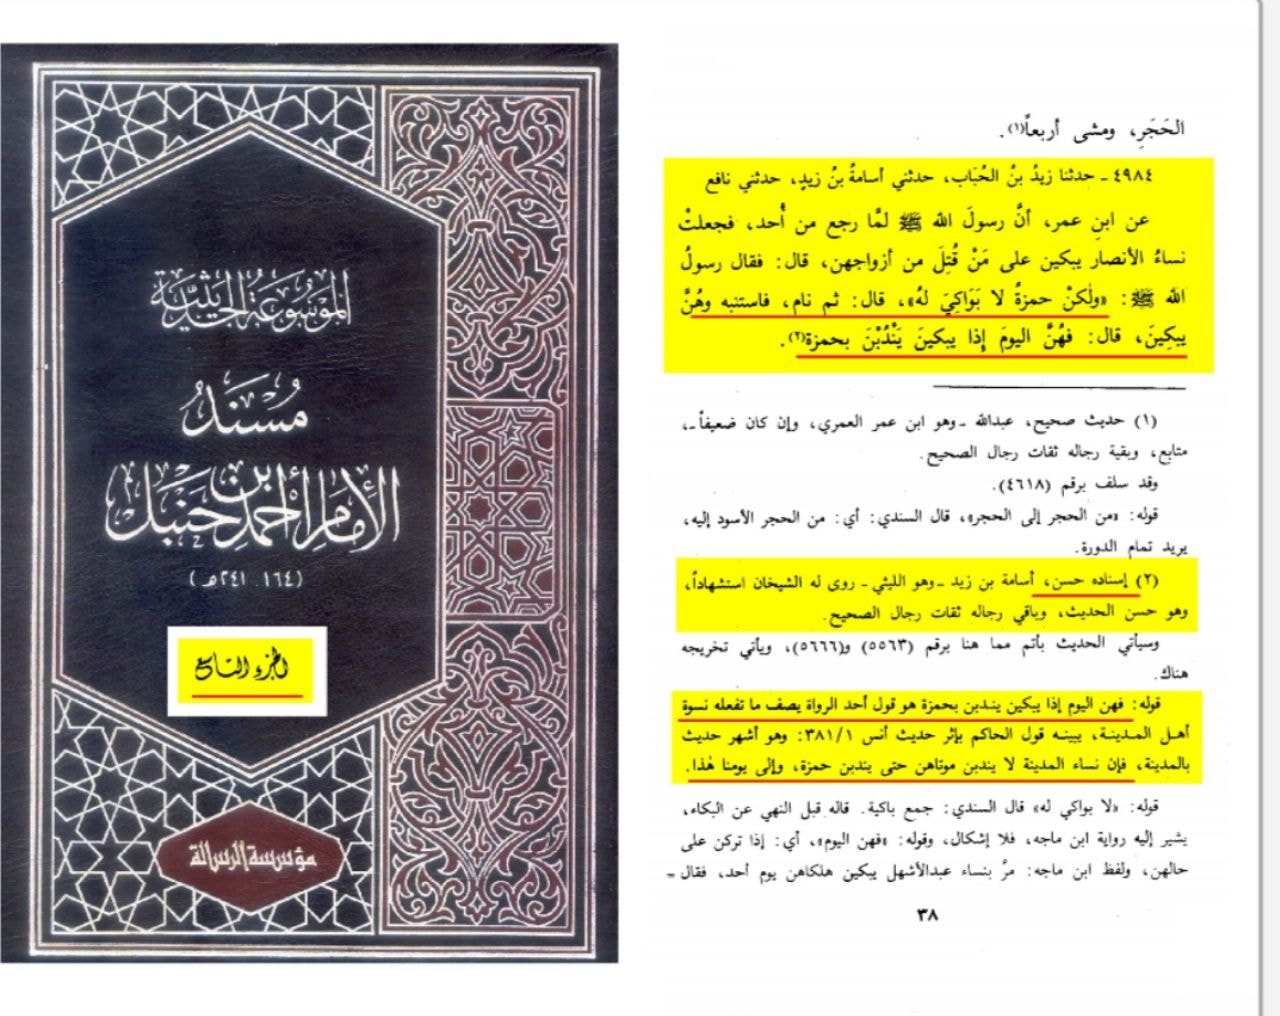 الموسوعة الحديثية
مسند
الإمام أحمد بن حنبل
(١٦٤ - ٢٤١ هـ)
الجزء التاسع
مؤسسة الرسالة
الحَجَرِ، ومشى أربعاً(١).
٤٩٨٤ ـ حدثنا زيدُ بنُ الحُبَاب، حدثني أسامةُ بنُ زيدٍ، حدثني نافع
عن ابنِ عمر، أنَّ رسولَ الله ﷺ لمَّا رجع من أُحد، فجعلتْ
نساءُ الأنصار يبكين على مَنْ قُتِلَ من أزواجهن، قال: فقال رسولُ
الله ﷺ: «ولٰكنْ حمزةُ لا بَوَاكِيَ لهُ»، قال: ثم نام، فاستنبه وهُنَّ
يبكِينَ، قال: فهُنَّ اليومَ إِذا يبكينَ يَنْدُبْنَ بحمزة(٢).
(١) حديث صحيح، عبدالله ـ وهو ابن عمر العمري، وإن كان ضعيفاً ـ،
متابع، وبقية رجاله ثقات رجال الصحيح.
وقد سلف برقم (٤٦١٨).
قوله: «من الحجر إلى الحجر»، قال السندي: أي: من الحجر الأسود إليه،
يريد تمام الدورة.
(٢) إسناده حسن، أسامة بن زيد ـ وهو الليثي ـ روى له الشيخان استشهاداً،
وهو حسن الحديث، وباقي رجاله ثقات رجال الصحيح.
وسيأتي الحديث بأتم مما هنا برقم (٥٥٦٣) و(٥٦٦٦)، ويأتي تخريجه
هناك.
قوله: فهن اليوم إذا يبكين يندبن بحمزة هو قول أحد الرواة يصف ما تفعله نسوة
أهل المدينة، يبينه قول الحاكم بإثر حديث أنس ٣٨١/١: وهو أشهر حديث
بالمدينة، فإن نساء المدينة لا يندبن موتاهن حتى يندبن حمزة، وإلى يومنا هٰذا.
قوله: «لا بواكي له» قال السندي: جمع باكية. قاله قبل النهي عن البكاء،
يشير إليه رواية ابن ماجه، فلا إشكال، وقوله: «فهن اليوم»، أي: إذا تركن على
حالهن، ولفظ ابن ماجه: مرَّ بنساء عبدالأشهل يبكين هلكاهن يوم أحد، فقال =
٣٨